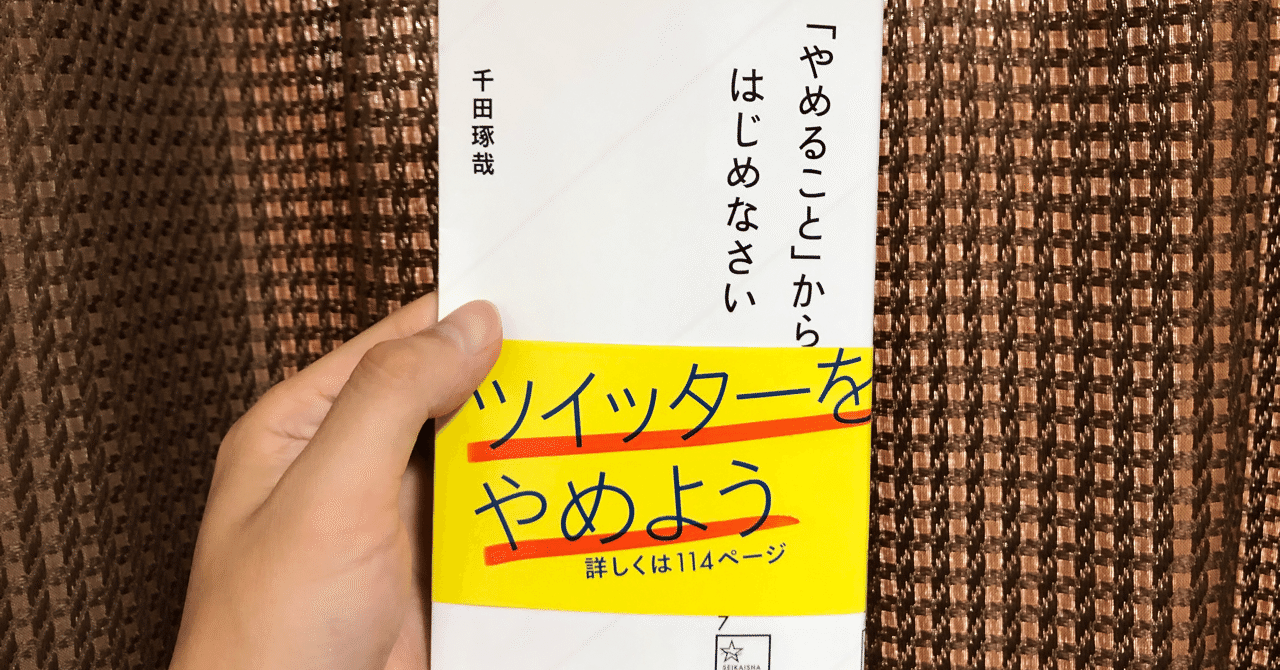 「やめること」から
はじめなさい
千田琢哉
ツイッターを
やめよう
詳しくは114ページ
7
SEIKAISHA